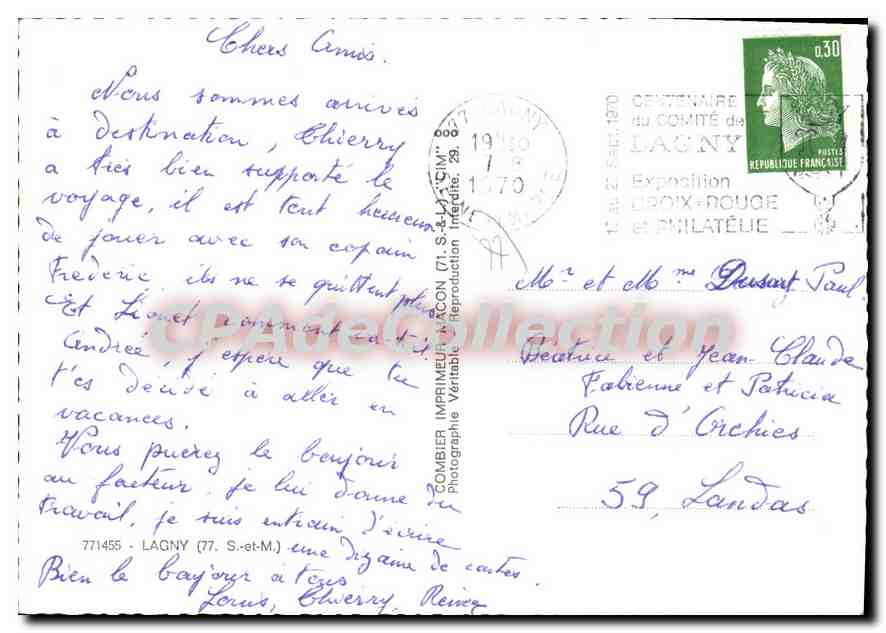 Chers Amis.
Nous sommes arrivés
à destination, Thierry
a très bien supporté le
voyage, il est tout heureux
de jouer avec son copain
Frédéric, ils ne se quittent plus
Et Lionel comment va-t-il
Andrée, j'espère que tu
t'es décidé à aller en
vacances.
Vous puerez le bonjour
au facteur, je lui donne du
travail, je suis entrain d'écrire
une dizaine de cartes.
771455 - LAGNY (77. S.-et-M.)
Bien le bonjour à tous
Louis, Thierry,
COMBIER IMPRIMEUR MACON (71. S.-&-L.) "CIM"
Photographie Véritable - Reproduction Interdite. 29.
77 LAGNY
1970
Sept. 1970
CENTENAIRE
du COMITÉ de
LAGNY
Exposition
CROIX-ROUGE
et PHILATÉLIE
0,30
POSTES
REPUBLIQUE FRANÇAISE
Mr et Mme Dusart Paul
Béatrice et Jean Claude
Fabienne et Patricia
Rue d'Orchies
59, Landas
CPAdeCollection